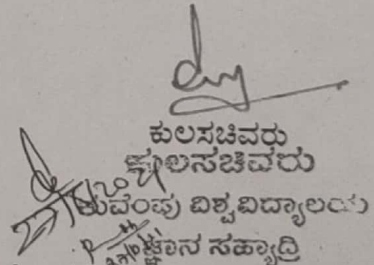 ಕುಲಸಚಿವರು
ಕುಲಸಚಿವರು
ಕುವೆಂಪು ವಿಶ್ವವಿದ್ಯಾಲಯ
ಜ್ಞಾನ ಸಹ್ಯಾದ್ರಿ